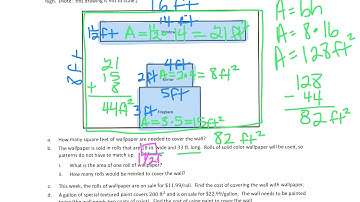 high. (Note: this drawing is not to scale.)
16 ft
14 ft
1½ft A = 1½ · 4 = 21 ft²
8 ft
4ft
2ft A=2·4 = 8ft²
5ft
3ft Fireplace
A = 3·5 = 15ft²
21
15
+ 8
44ft²
A = bh
A = 8·16
A = 128ft²
128
- 44
82 ft²
a. How many square feet of wallpaper are needed to cover the wall? 82 ft²
b. The wallpaper is sold in rolls that are 18 in. wide and 33 ft. long. Rolls of solid color wallpaper will be used, so
patterns do not have to match up.
i. What is the area of one roll of wallpaper?
ii. How many rolls would be needed to cover the wall?
c. This week, the rolls of wallpaper are on sale for $11.99/roll. Find the cost of covering the wall with wallpaper.
d. A gallon of special textured paint covers 200 ft² and is on sale for $22.99/gallon. The wall needs to be painted